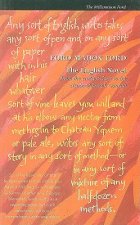 The Millennium Ford
Any sort of English writer takes
any sort of pen and on any sort
of paper
with in his
hair
whatever
FORD MADOX FORD
The English Novel
sort of vine leaves you will and
at his elbow any nectar from
metheglin to Château Yquem
or pale ale, writes any sort of
story in any sort of method—or
in any sort of
mixture of any
half-dozen
methods.